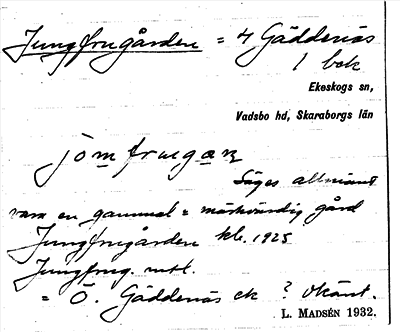 Jungfrugården = 4 Gäddenäs
1 bek
Ekeskogs sn,
Vadsbo hd, Skaraborgs län
jomfrugan
Säges allmänt
vara en gammal = märkvärdig gård
Jungfrugården kl. 1925
Jungfrug. mtl.
= Ö. Gäddenäs ek ? okänt.
L. MADSÉN 1932.